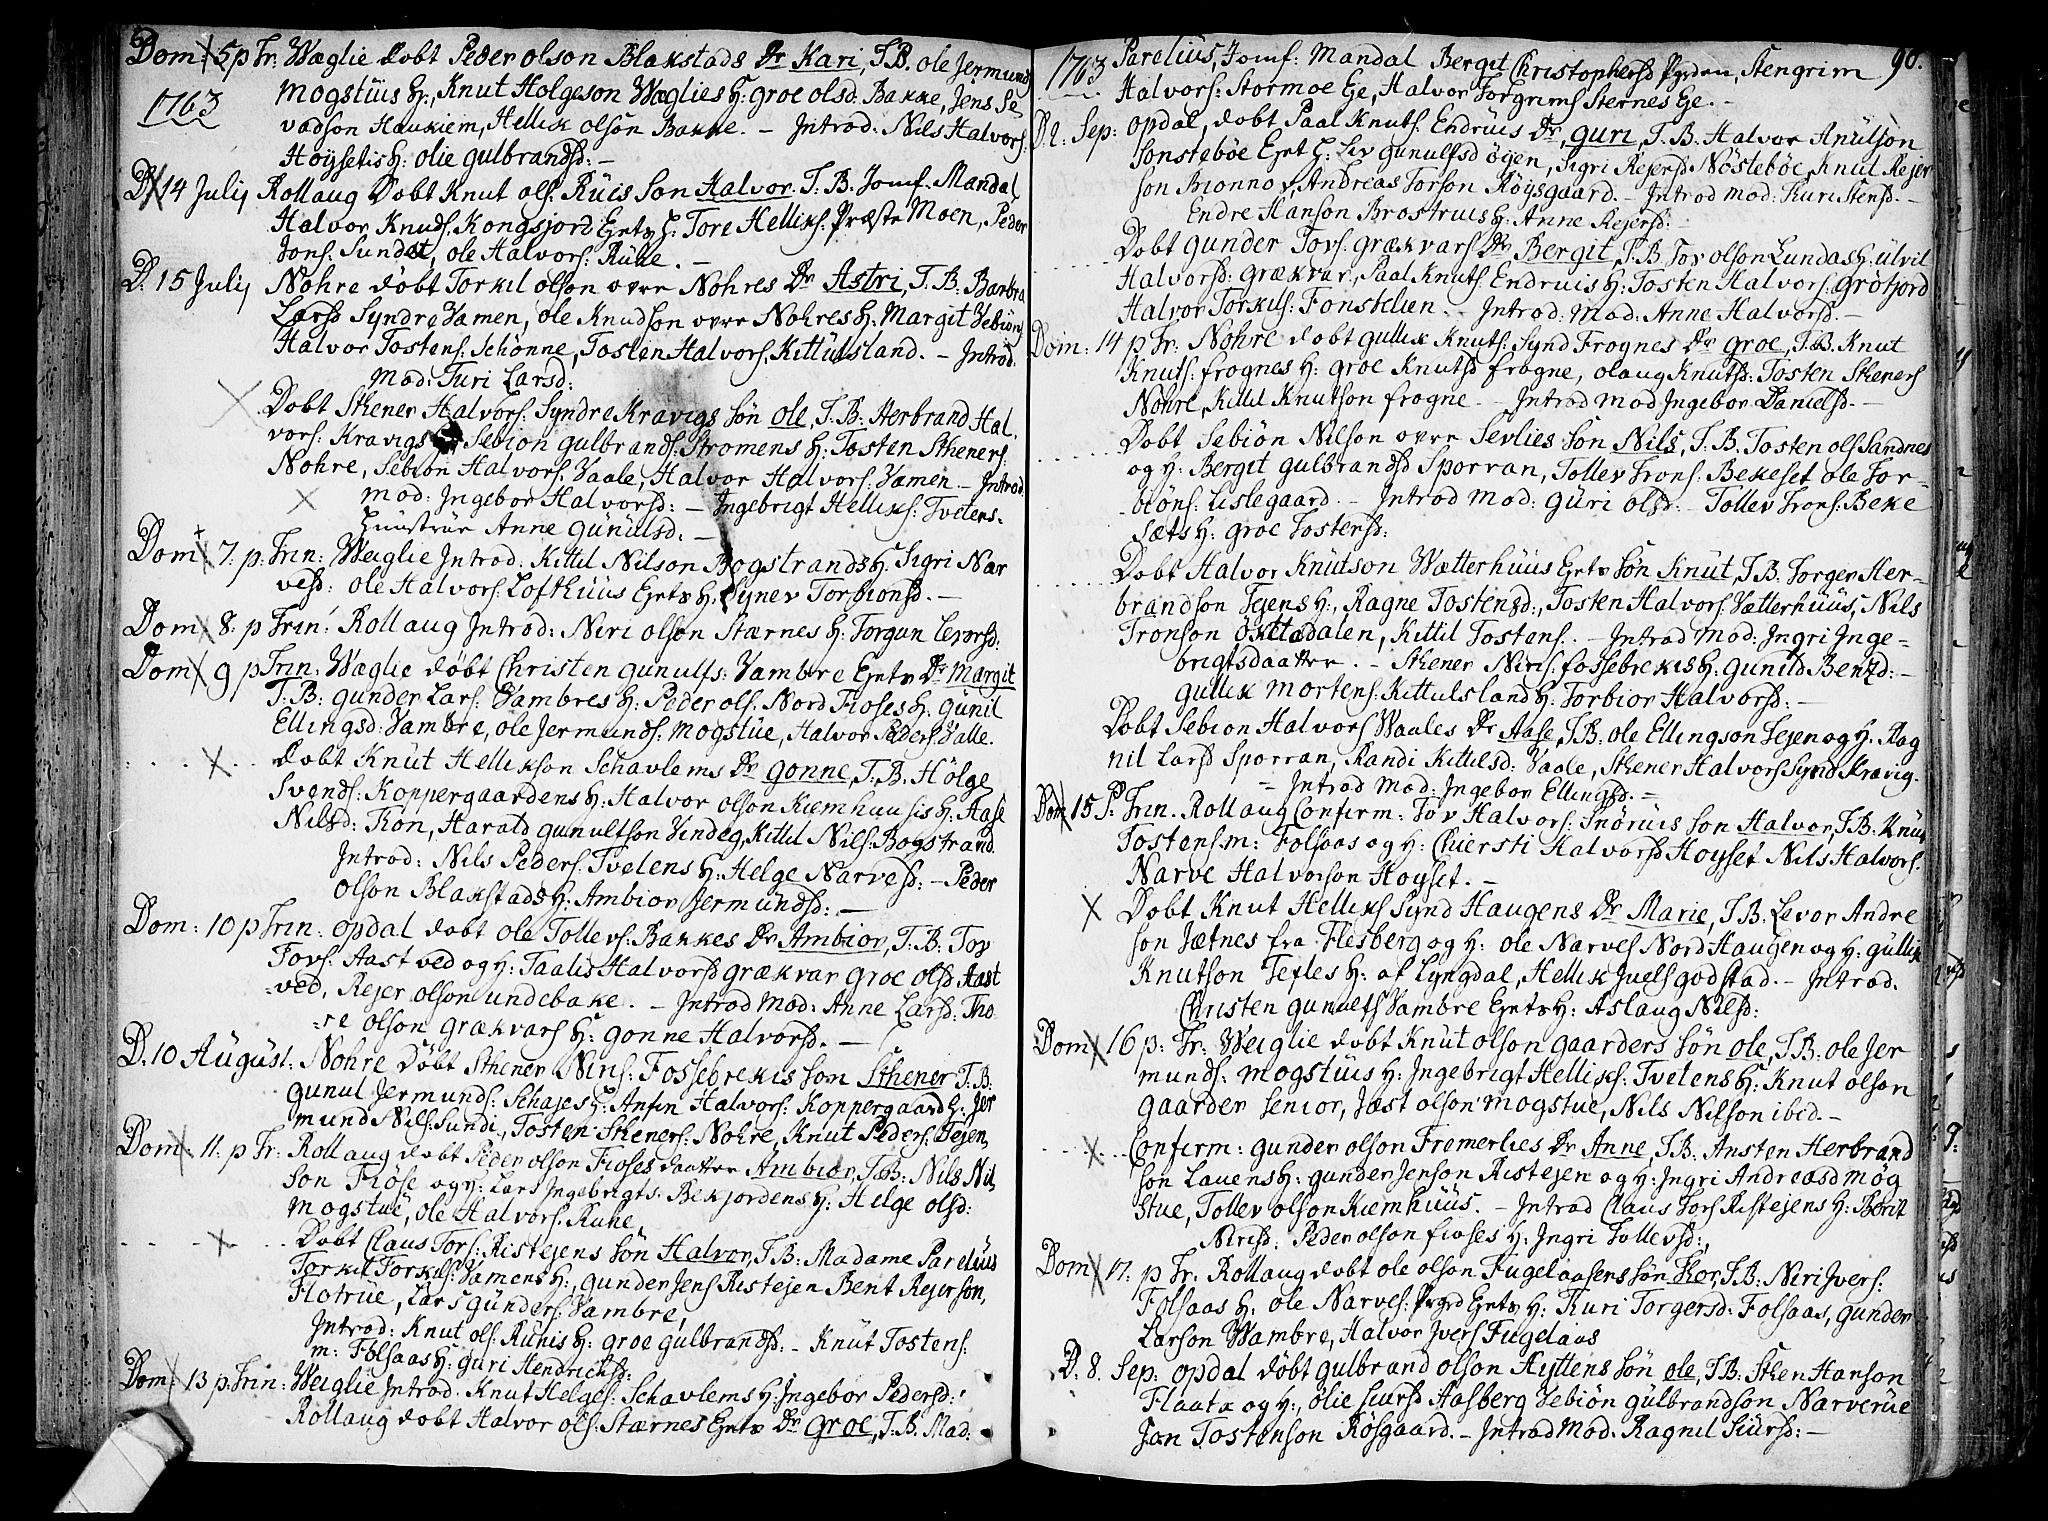 Dom: 5 p Tr: Wæglie dobt Peder olson Blakstads Dr Kari, T.B. ole Jermund
1763
Mogstuis H:, Knut Holgeson Wæglies H: groe olsd: Bakke, Jens Se
vadson Haukiem, Hellik olson Bakke. – Introd: Nils Halvors:
Hoysetis H: olie gulbrandsd: –
D. 14 Julij Rollaug Dobt Knut ols: Ruis Son Halvor. T.B. Jomf: Mandal
Halvor Knuds: Kongsjord Tore Helliks: Præste Moen, Peder
Jons: Sundet, ole Halvors: Ruhe. –
D. 15 Julij Nohre döbt Torkil olson ovre Nohres Dr Astri, T.B: Barbra
Larsd Syndre Vamen, ole Knudson ovre Nohres H: Margit Sebions
Halvor Tostens: Schonne, Tosten Halvors: Kittulsland. – Introd.
Mod: Turi Larsd:
Dobt Sthener Halvors: Syndre Kravigs Sön ole, T.B: Herbrand Hal
vors: Kravigs Sebion gulbrands: Stromens H: Tosten Stheners:
Nohre, Sebion Halvors: Vaale, Halvor Halvors: Vamen – Introd.
Mod: Ingebor Halvorsd: – Ingebrigt Helliks: Tvetens-
Huustrue Anne gunulsd. –
Dom 7. p: Trin: Weglie Introd. Kittil Nilson Bogstrands H: Sigri Nar
vesd: ole Halvors: Lofthuus H: Torbionsd. –
Dom 8: p Trin: Rollaug Introd: Niri olson Stærnes H: Torgun Levorsd:
Dom 9 p Trin: Waglie döbt Christen gunulfs: Vambre Dr Margit
T.B: gunder Lars: Vambres H: Peder ols: Nord Fioses H: gunil
Ellingsd: Vambre, ole Jermunds: Mogstue, Halvor Peders: Valle.
Dobt Knut Hellikson Schavlems Dr gonne, T.B. Hölge
Svends: Koppergaardens H: Halvor olson Kiemhuusis H: Aase
Nilsd: Kon, Harald gunultson Vindeg, Kittil Nils: Bogstrand.
Introd: Nils Peders: Tvetens H: Helge Narvesd: – Peder
olson Blakstads H: Ambior Jermundsd: –
Dom: 10 p Trin: opdal dobt ole Tollevs: Bakkes Dr Ambior, T.B: Tov
Tovs: Aastved og H: Taalis Halvorsd grækvar groe olsd: Aast
ved, Rejer olson undebake. – Introd Mod: Anne Larsd: Tho
re olson grækvars H: gonne Halvorsd. –
D. 10 August: Nohre Döbt Sthener Niris: Fossebrekis Son Sthener T.B:
gunul Jermunds: Schajes H: Anfin Halvors: Koppergaard H: Jer
mund Nils: Sundi, Tosten Stheners: Nohre, Knut Peders: Tejen,
Dom: 11. p Tr: Rollaug dobt Peder olson Fioses daatter Ambior, T.B: Nils Nil
son Fiöse og H: Lars Ingebrigts: Bekjordens H: Helge olsd:
Mogstue, ole Halvors: Ruhe,
Dobt Claus Tors: Ristejens Sön Halvor, T.B: Madame Parelius
Torkil Torkils: Vamens H:, gunder Jens Ristejen Bent Rejerson,
Flotrue, Lars gunders: Vambre,
Introd: Knut ols: Ruhis H: groe gulbrandsd: – Knut Tostens:
m: Folsaas H: guri Hendricksd:
Dom 13 p. Trin: Weiglie Introd. Knut Helges: Schavlems H: Ingebor Pedersd:
Rollaug dobt Halvor ols: Stærnes Dr Groe, T.B. Mad:
1763 Parelius, Jomf: Mandal Bergit Christophersd Pyrden, Stengrim 90.
Halvors: Stormoe Eje, Halvor Torgrims Sternes Eje. –
D 2. Sep: opdal, dobt Paal Knuts: Endruis Dr, guri, T.B. Halvor Anulson
Sonsteböe H: Liv gunulfsd ögen, Sigri Rejersd Nösteböe, Knut Rejer
son Bionno, Andreas Torson Röysgaard. – Introd Mod: Kuri Stensd. –
Endre Hanson Brostruis H: Anne Rejersd:
Dobt gunder Tovs: grækvars Dr Bergit, T.B Tov olson Lundas H: ulvil
Halvorsd: grækvar, Paal Knuts: Endruis H: Tosten Halvors: grötjord
Halvor Torkils: Fonstelien. Introd: Mod: Anne Halvorsd. –
Dom: 14 p Tr: Nohre dobt gullik Knuts: Synd Frognes Dr groe, T.B. Knut
Knuts: frognes H: groe Knutsd frogne, olaug Knutsd: Tosten Stheners
Nohre, Kittil Knutson frogne – Introd Mod Ingebor Danielsd. –
Dobt Sebiön Nilson ovre Sevlies Sön Nils, T.B. Tosten ols: Sandnes
og H: Bergit gulbrandsd Sporran, Tollev Trons: Bekeset ole Tor-
biöns: Lislegaard. – Introd Mod: guri olsd: – Tollev Trons: Beke
Sets H: groe Tostensd:
Dobt Halvor Knutson Wætterhuus Sön Knut, T.B. Torger Her-
brandson Tejens H:, Ragne Tostensd:, Tosten Halvors: Vætterhuus, Nils
Tronson öktedalen, Kittil Tostens. – Introd Mod: Ingri Inge-
brigtsdaatter. – Sthener Niris: fossebrekis H: gunild Bentzd: –
gullik Mortens: Kittulsland H: Torbior Halvorsd: –
Dobt Sebion Halvors Waales Dr Aase, T.B: ole Ellingson Tejen og H: Rag
nil Larsd Sporran, Randi Kittilsd: Vaale, Sthener Halvors Synd Kravig.
= Introd Mod: Ingebor Ellingsd. =
Dom 15 P: Trin. Rollaug Confirm: Tov Halvors: Snöruis Son Halvor, T.B: Knut
Tostens m: Folsaas og H: Chiersti Halvorsd Hoyset Nils Halvors:
Narve Halvorson Hoyset. –
Dobt Knut Helliks Synd Haugens Dr Marie, T.B: Levor Andre
son Jætnes fra Flesberg og H: ole Narves Nord Haugen og H: gullik
Knutson Tefles H: af Lyngdal, Hellik Juels godstad. – Introd.
Christen gunulfs Vambre H: Aslaug Nilsd:
Dom 16 p: Tr: Weiglie dobt Knut olson gaarders Sön ole, T.B: ole Jer
munds: Mogstuis H: Ingebrigt Helliks: Tvetens H: Knut olson
gaarder Senior, Jost olson Mogstue, Nils Nilson ibid. –
Confirm: gunder olson Fremerlies Dr Anne, T.B: Ansten Herbrand
Son Lauens H: gunder Jenson Ristejen og H: Ingri Andreasd Mög
stue, Tollev olson Kiemhuus. – Introd Claus Tors Ristejens H: Berit
Nirisd: Peder olson fioses H: Ingri Tollevsd:,
Dom 17. p Tr. Rollaug dobt ole olson Fugelaasens Sön Iver, T.B: Niri Ivers:
Folsaas H: ole Narves: H: Turi Torgersd: Folsaas, gunder
Larson Wambre, Halvor Ivers Fugelaas
D. 8. Sep: opdal döbt gulbrand olson Hyttens Sön ole, T.B: Sthen Hanson
Flaata og H:, olie Siursd Aasberg Sebiön gulbrandson Narverue
Jon Tostenson Rösgaard. – Introd Mod. Ragnil Siursd: –